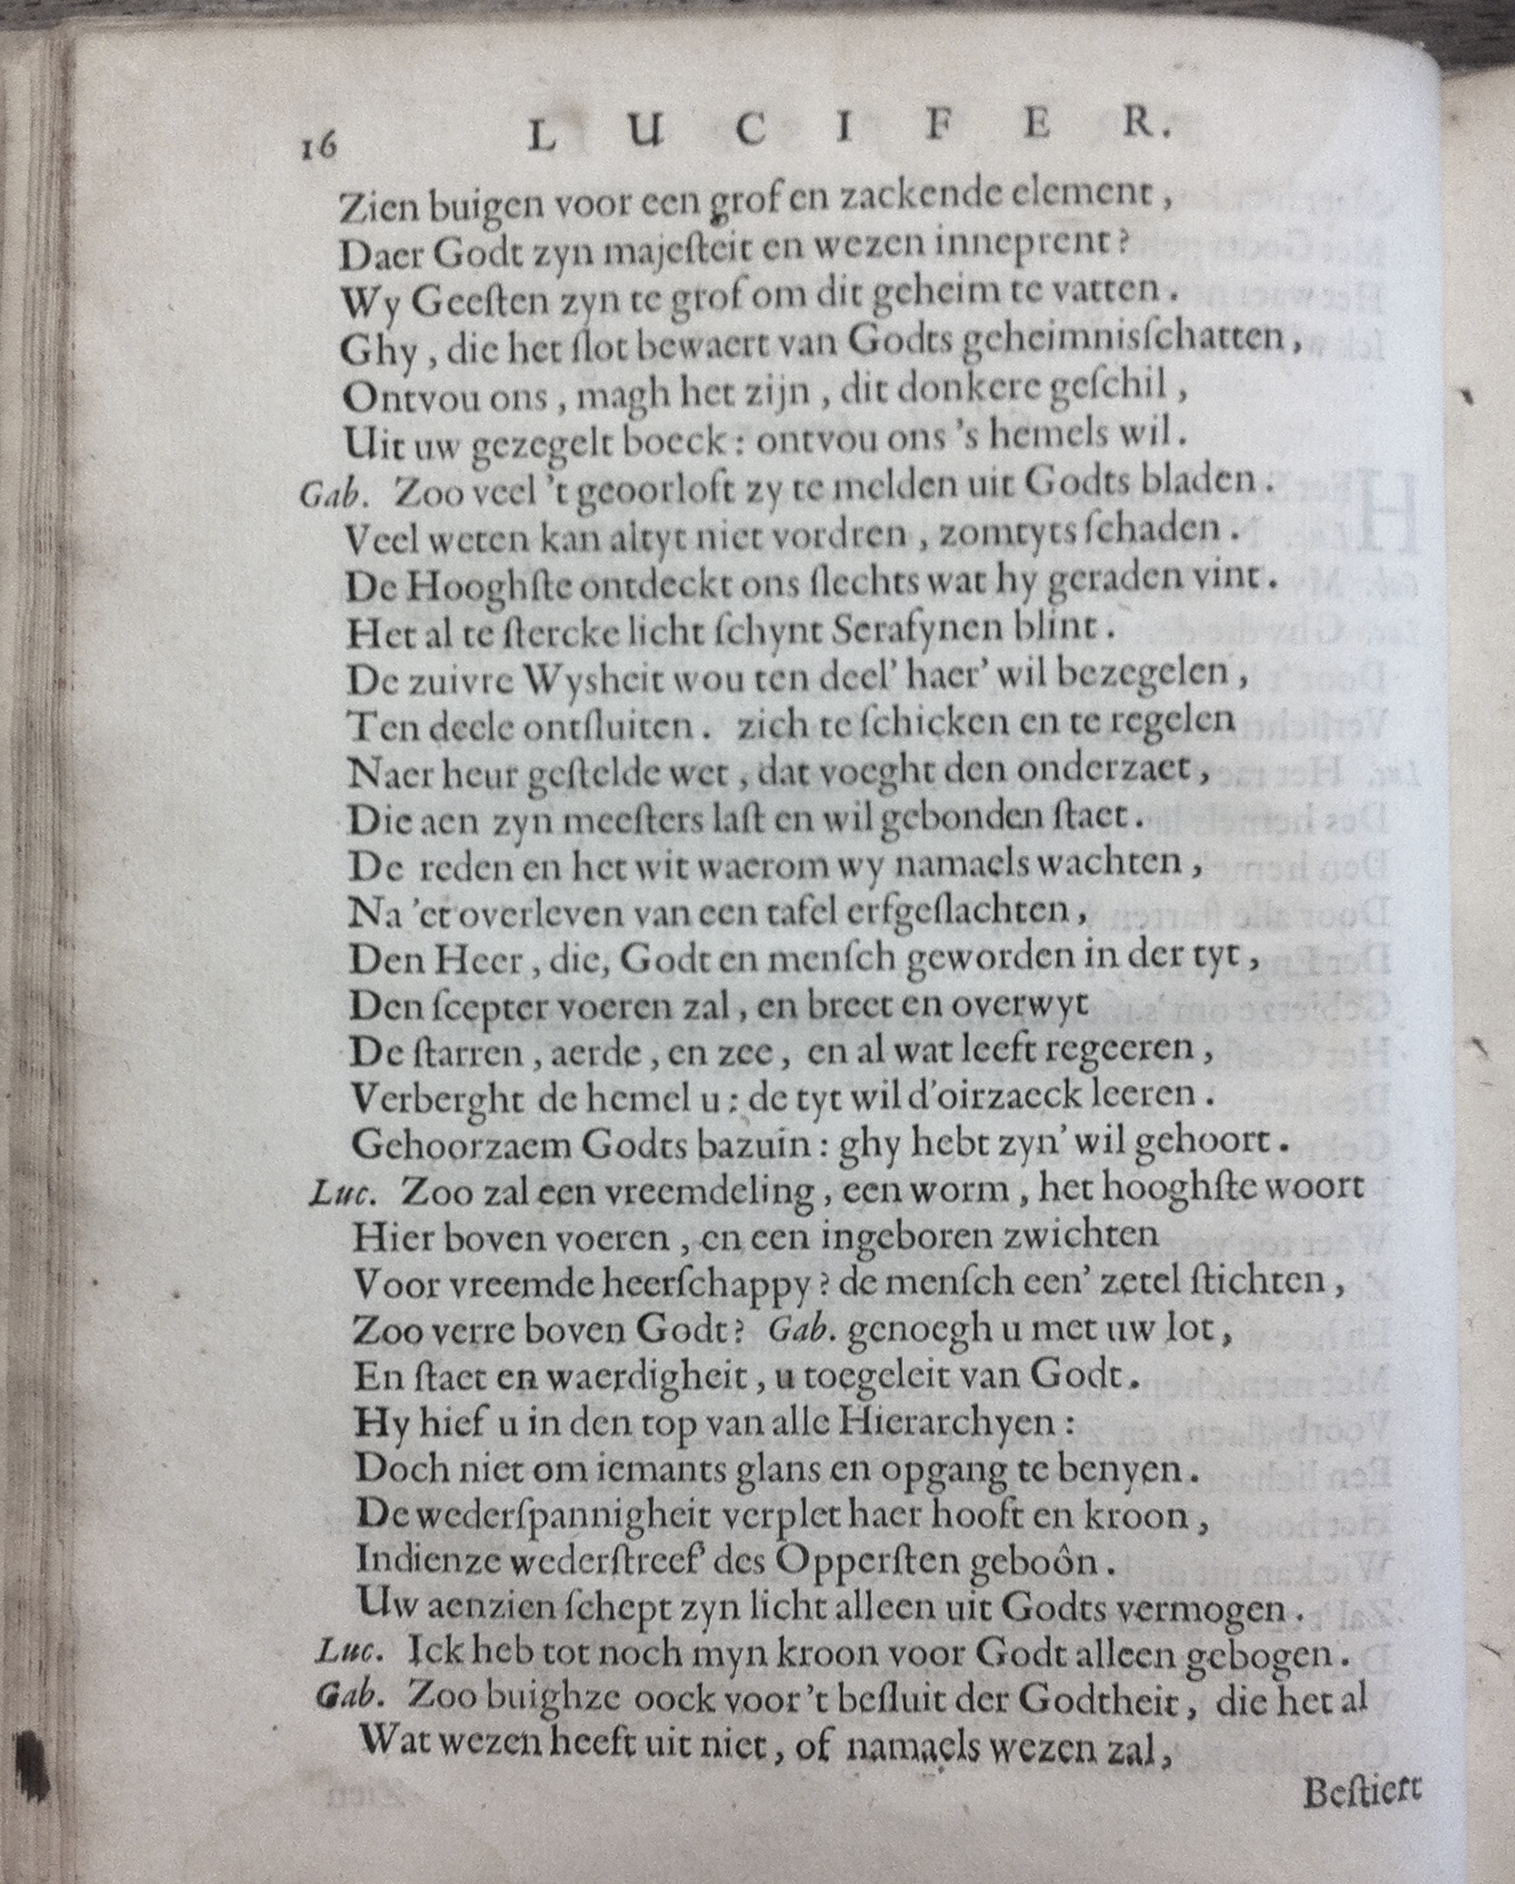 16 L U C I F E R.
Zien buigen voor een grof en zackende element,
Daer Godt zyn majeſteit en wezen inneprent?
Wy Geeſten zyn te grof om dit geheim te vatten.
Ghy, die het ſlot bewaert van Godts geheimnisſchatten,
Ontvou ons, magh het zijn, dit donkere geſchil,
Uit uw gezegelt boeck: ontvou ons 's hemels wil.
Gab. Zoo veel 't geoorloft zy te melden uit Godts bladen.
Veel weten kan altyt niet vordren, zomtyts ſchaden.
De Hooghſte ontdeckt ons ſlechts wat hy geraden vint.
Het al te ſtercke licht ſchynt Serafynen blint.
De zuivre Wysheit wou ten deel' haer' wil bezegelen,
Ten deele ontſluiten. zich te ſchicken en te regelen
Naer heur geſtelde wet, dat voeght den onderzaet,
Die aen zyn meeſters laſt en wil gebonden ſtaet.
De reden en het wit waerom wy namaels wachten,
Na 'et overleven van een tafel erfgeſlachten,
Den Heer, die, Godt en menſch geworden in der tyt,
Den ſcepter voeren zal, en breet en overwyt
De ſtarren, aerde, en zee, en al wat leeft regeeren,
Verberght de hemel u: de tyt wil d'oirzaeck leeren.
Gehoorzaem Godts bazuin: ghy hebt zyn' wil gehoort.
Luc. Zoo zal een vreemdeling, een worm, het hooghſte woort
Hier boven voeren, en een ingeboren zwichten
Voor vreemde heerſchappy? de menſch een' zetel ſtichten,
Zoo verre boven Godt? Gab. genoegh u met uw lot,
En ſtaet en waerdigheit, u toegeleit van Godt.
Hy hief u in den top van alle Hierarchyen:
Doch niet om iemants glans en opgang te benyen.
De wederſpannigheit verplet haer hooft en kroon,
Indienze wederſtreef' des Opperſten geboôn.
Uw aenzien ſchept zyn licht alleen uit Godts vermogen.
Luc. Ick heb tot noch myn kroon voor Godt alleen gebogen.
Gab. Zoo buighze oock voor 't beſluit der Godtheit, die het al
Wat wezen heeft uit niet, of namaels wezen zal,
Beſtiert